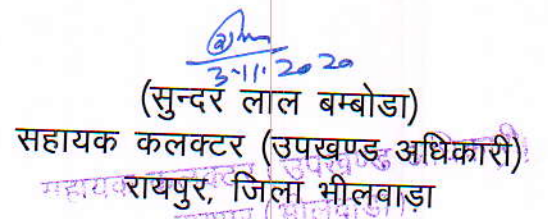 3-11-2020
(सुन्दर लाल बम्बोडा)
सहायक कलक्टर (उपखण्ड अधिकारी)
सहायक कलक्टर (उपखण्ड अधिकारी)
रायपुर, जिला भीलवाड़ा